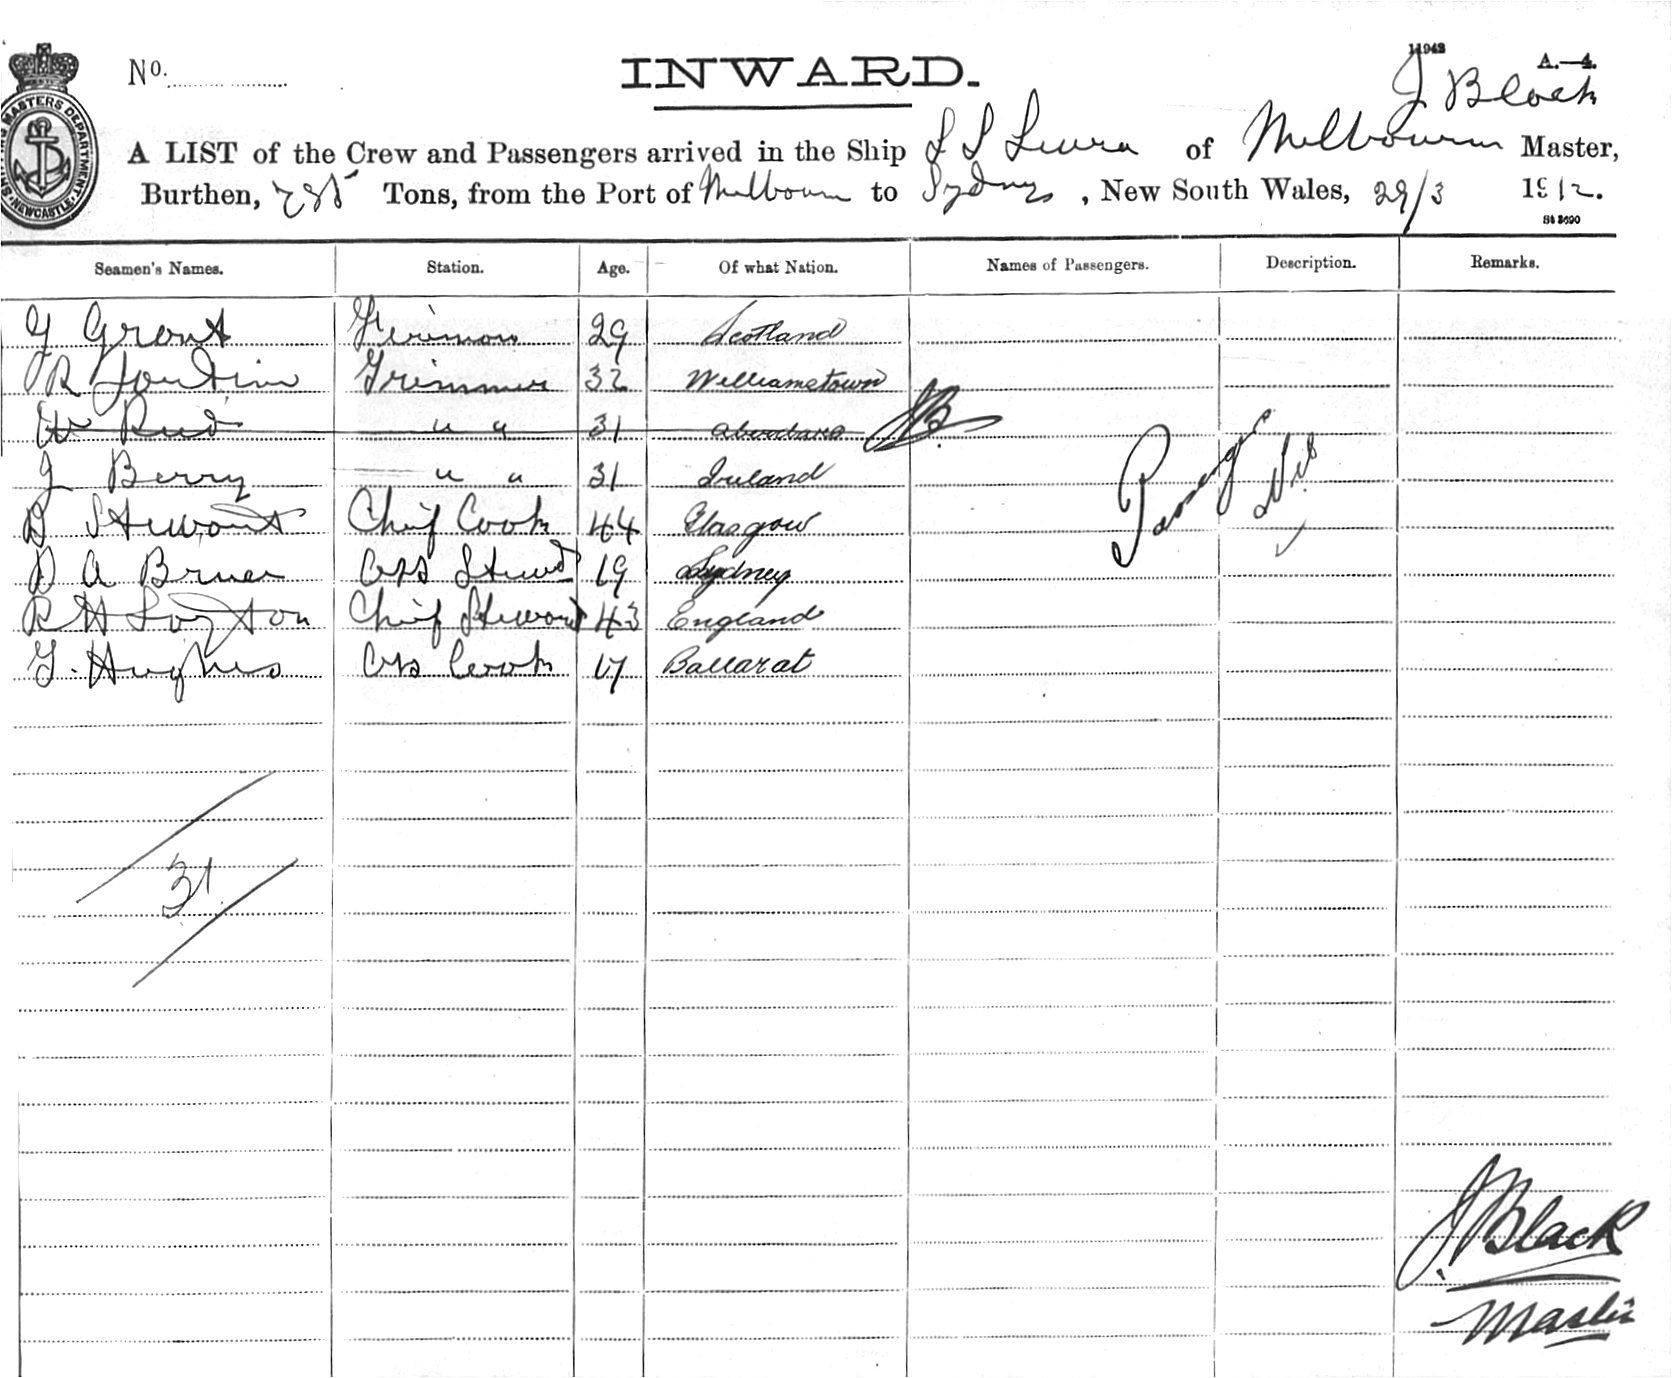 No.
INWARD.
11942
A.—4.
J Black
A LIST of the Crew and Passengers arrived in the Ship S S Leura of Melbourne Master,
Burthen, Tons, from the Port of Melbourne to Sydney, New South Wales, 29/3 1912.
Seamen's Names. Station. Age. Of what Nation. Names of Passengers. Description. Remarks.
G Grant 29 Scotland
R Trimmer 32 Williamstown
W Reid " " 31 JB.
J Berry " " 31 Ireland
D Stewart Chief Cook 44 Glasgow
D A Bruce Ass Stewd 19 Sydney
R H Chief Steward 43 England
G. Hughes Ass Cook 17 Ballarat
Passengers Nil
31
J Black
Master
MASTERS DEPARTMENT
NEWCASTLE